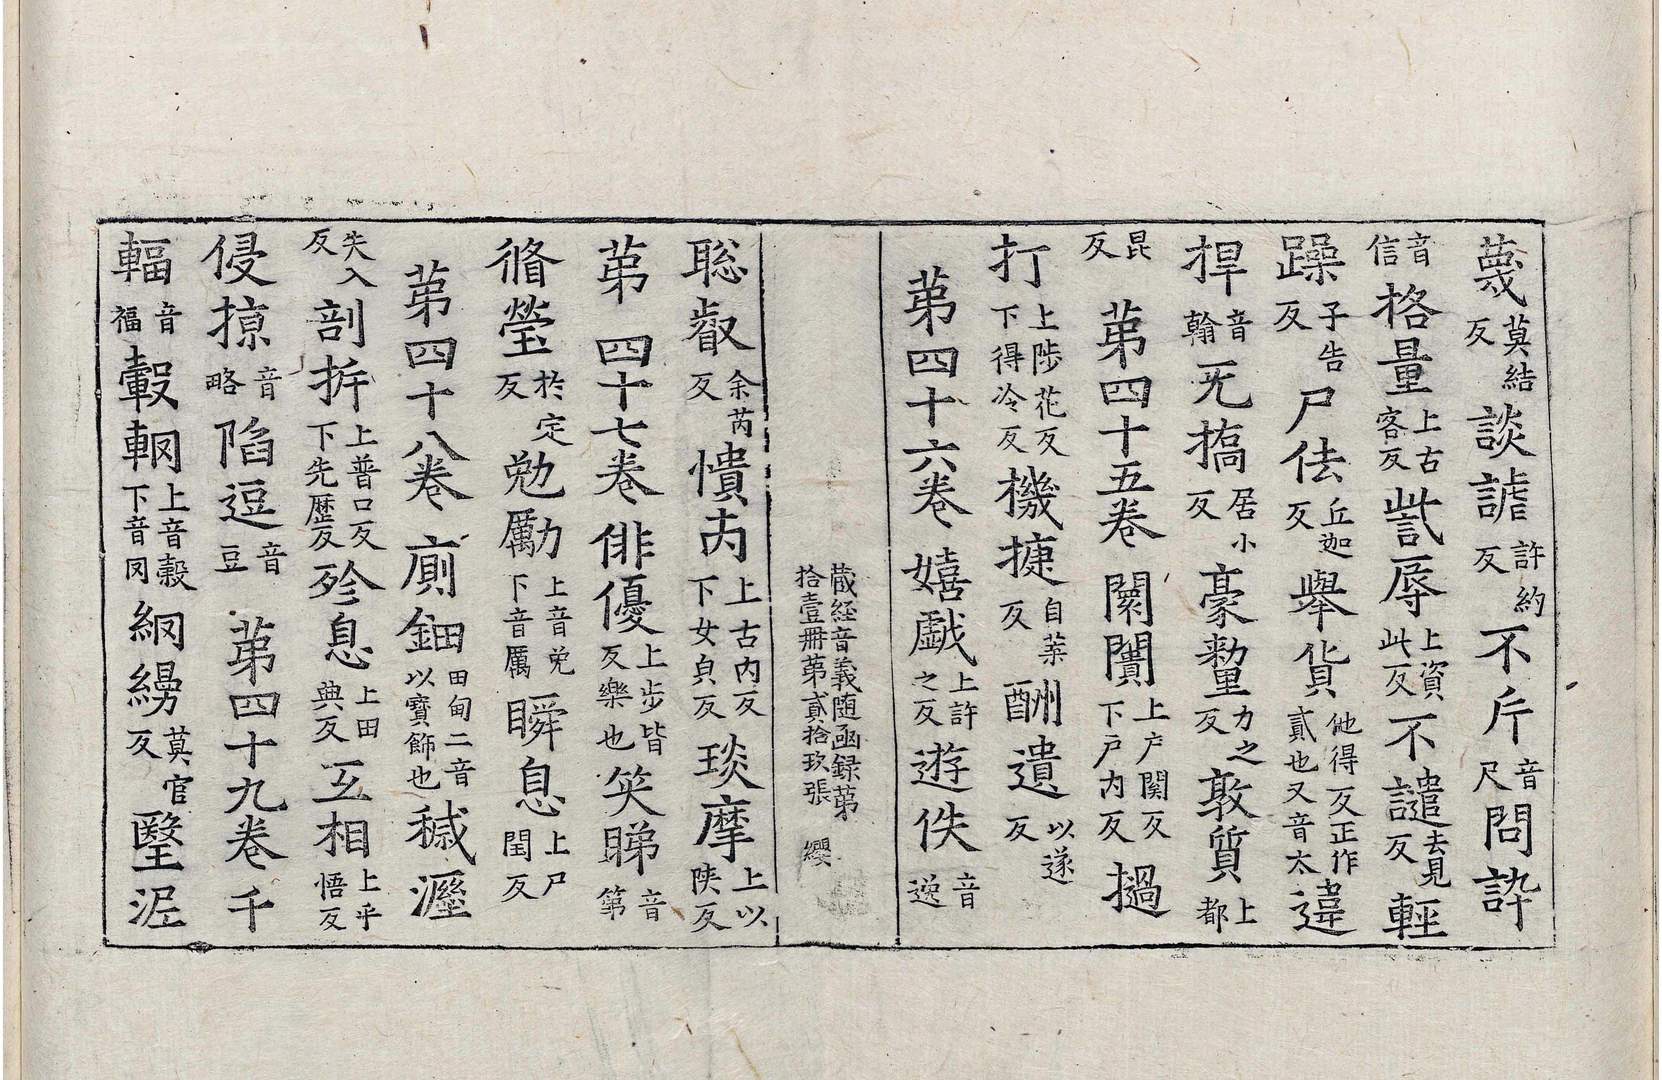 蔑莫結反談謔許約反不斤音尺問訡
音信格量上古客反訾辱上資此反不譴去見反輕
躁子告反尸佉丘迦反舉貨他得反正作貳也又音太違
捍音翰旡撟居小反豪氂力之反敦質上都
昆反第四十五卷闤闠上户関反下户内反撾
打上陟花反下得冷反機揵自葉反酬遺以遂反
第四十六卷嬉戱上許之反遊佚音逸
藏経音義随函録第拾壹冊第貳拾玖張 纓
聡叡余芮反憒丙上古内反下女皃反琰摩上以陕反
第四十七卷俳優上步皆反樂也笶睇音第
脩瑩於定反勉勵上音免下音厲瞬息上尸閏反
第四十八卷廁鈿田甸二音以寳飾也穢濕
失入反剖拆上普口反下先歷反殄息上田典反互相上乎悟反
侵掠音略陷逗音豆第四十九卷千
輻音福轂輞上音穀下音冈網縵莫官反毉泥